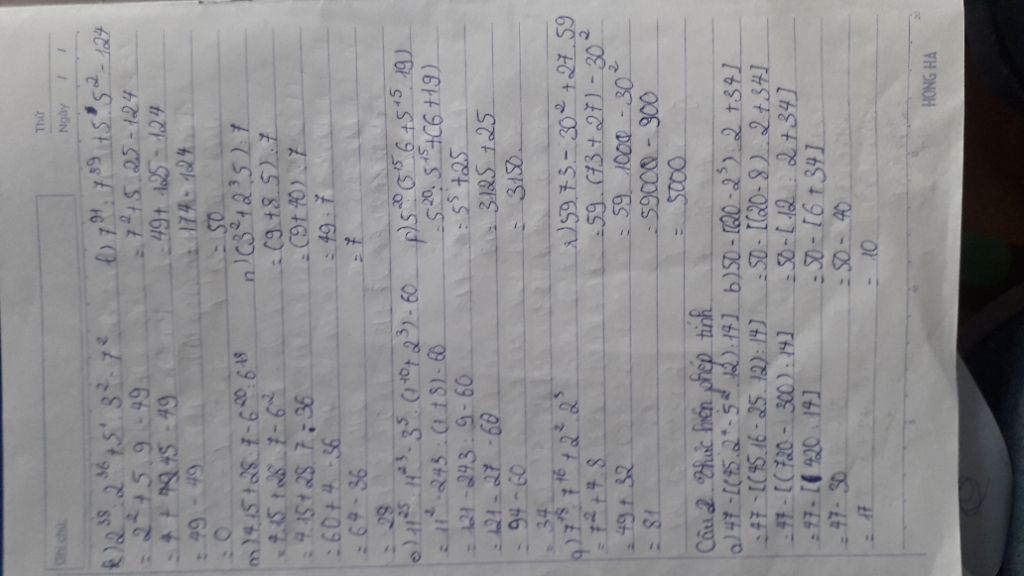 Thứ
Ngày / /
k) 2³⁸ : 2³⁶ + 5¹ . 3² - 7²
= 2² + 5 . 9 - 49
= 4 + 45 - 49
= 49 - 49
= 0
l) 7⁹¹ : 7⁸⁹ + 5 . 5² - 124
= 7² + 5 . 25 - 124
= 49 + 125 - 124
= 174 - 124
= 50
m) 4.15 + 28 : 7 - 6²⁰ : 6¹⁸
= 4.15 + 28 : 7 - 6²
= 4.15 + 28 : 7 - 36
= 60 + 4 - 36
= 64 - 36
= 28
n) (3² + 2³.5) : 7
= (9 + 8.5) : 7
= (9 + 40) : 7
= 49 : 7
= 7
o) 11²⁵ : 11²³ - 3⁵ : (1¹⁰ + 2³) - 60
= 11² - 243 : (1 + 8) - 60
= 121 - 243 : 9 - 60
= 121 - 27 - 60
= 94 - 60
= 34
p) 5²⁰ : (5¹⁵.6 + 5¹⁵.19)
= 5²⁰ : 5¹⁵ + (6 + 19)
= 5⁵ + 25
= 3125 + 25
= 3150
q) 7¹⁸ : 7¹⁶ + 2² . 2³
= 7² + 4 . 8
= 49 + 32
= 81
59.73 - 30² + 27.59
= 59 . (73 + 27) - 30²
= 59 . 1000 - 30²
= 59000 - 900
= 5000
Câu 2 Thực hiện phép tính
a) 47 - [(45.2⁴ - 5².12) : 14]
= 47 - [(45.16 - 25.12) : 14]
= 47 - [(720 - 300) : 14]
= 47 - [420 : 14]
= 47 - 30
= 17
b) 50 - [(20 - 2³) : 2 + 34]
= 50 - [(20 - 8) : 2 + 34]
= 50 - [12 : 2 + 34]
= 50 - [6 + 34]
= 50 - 40
= 10
HONG HA